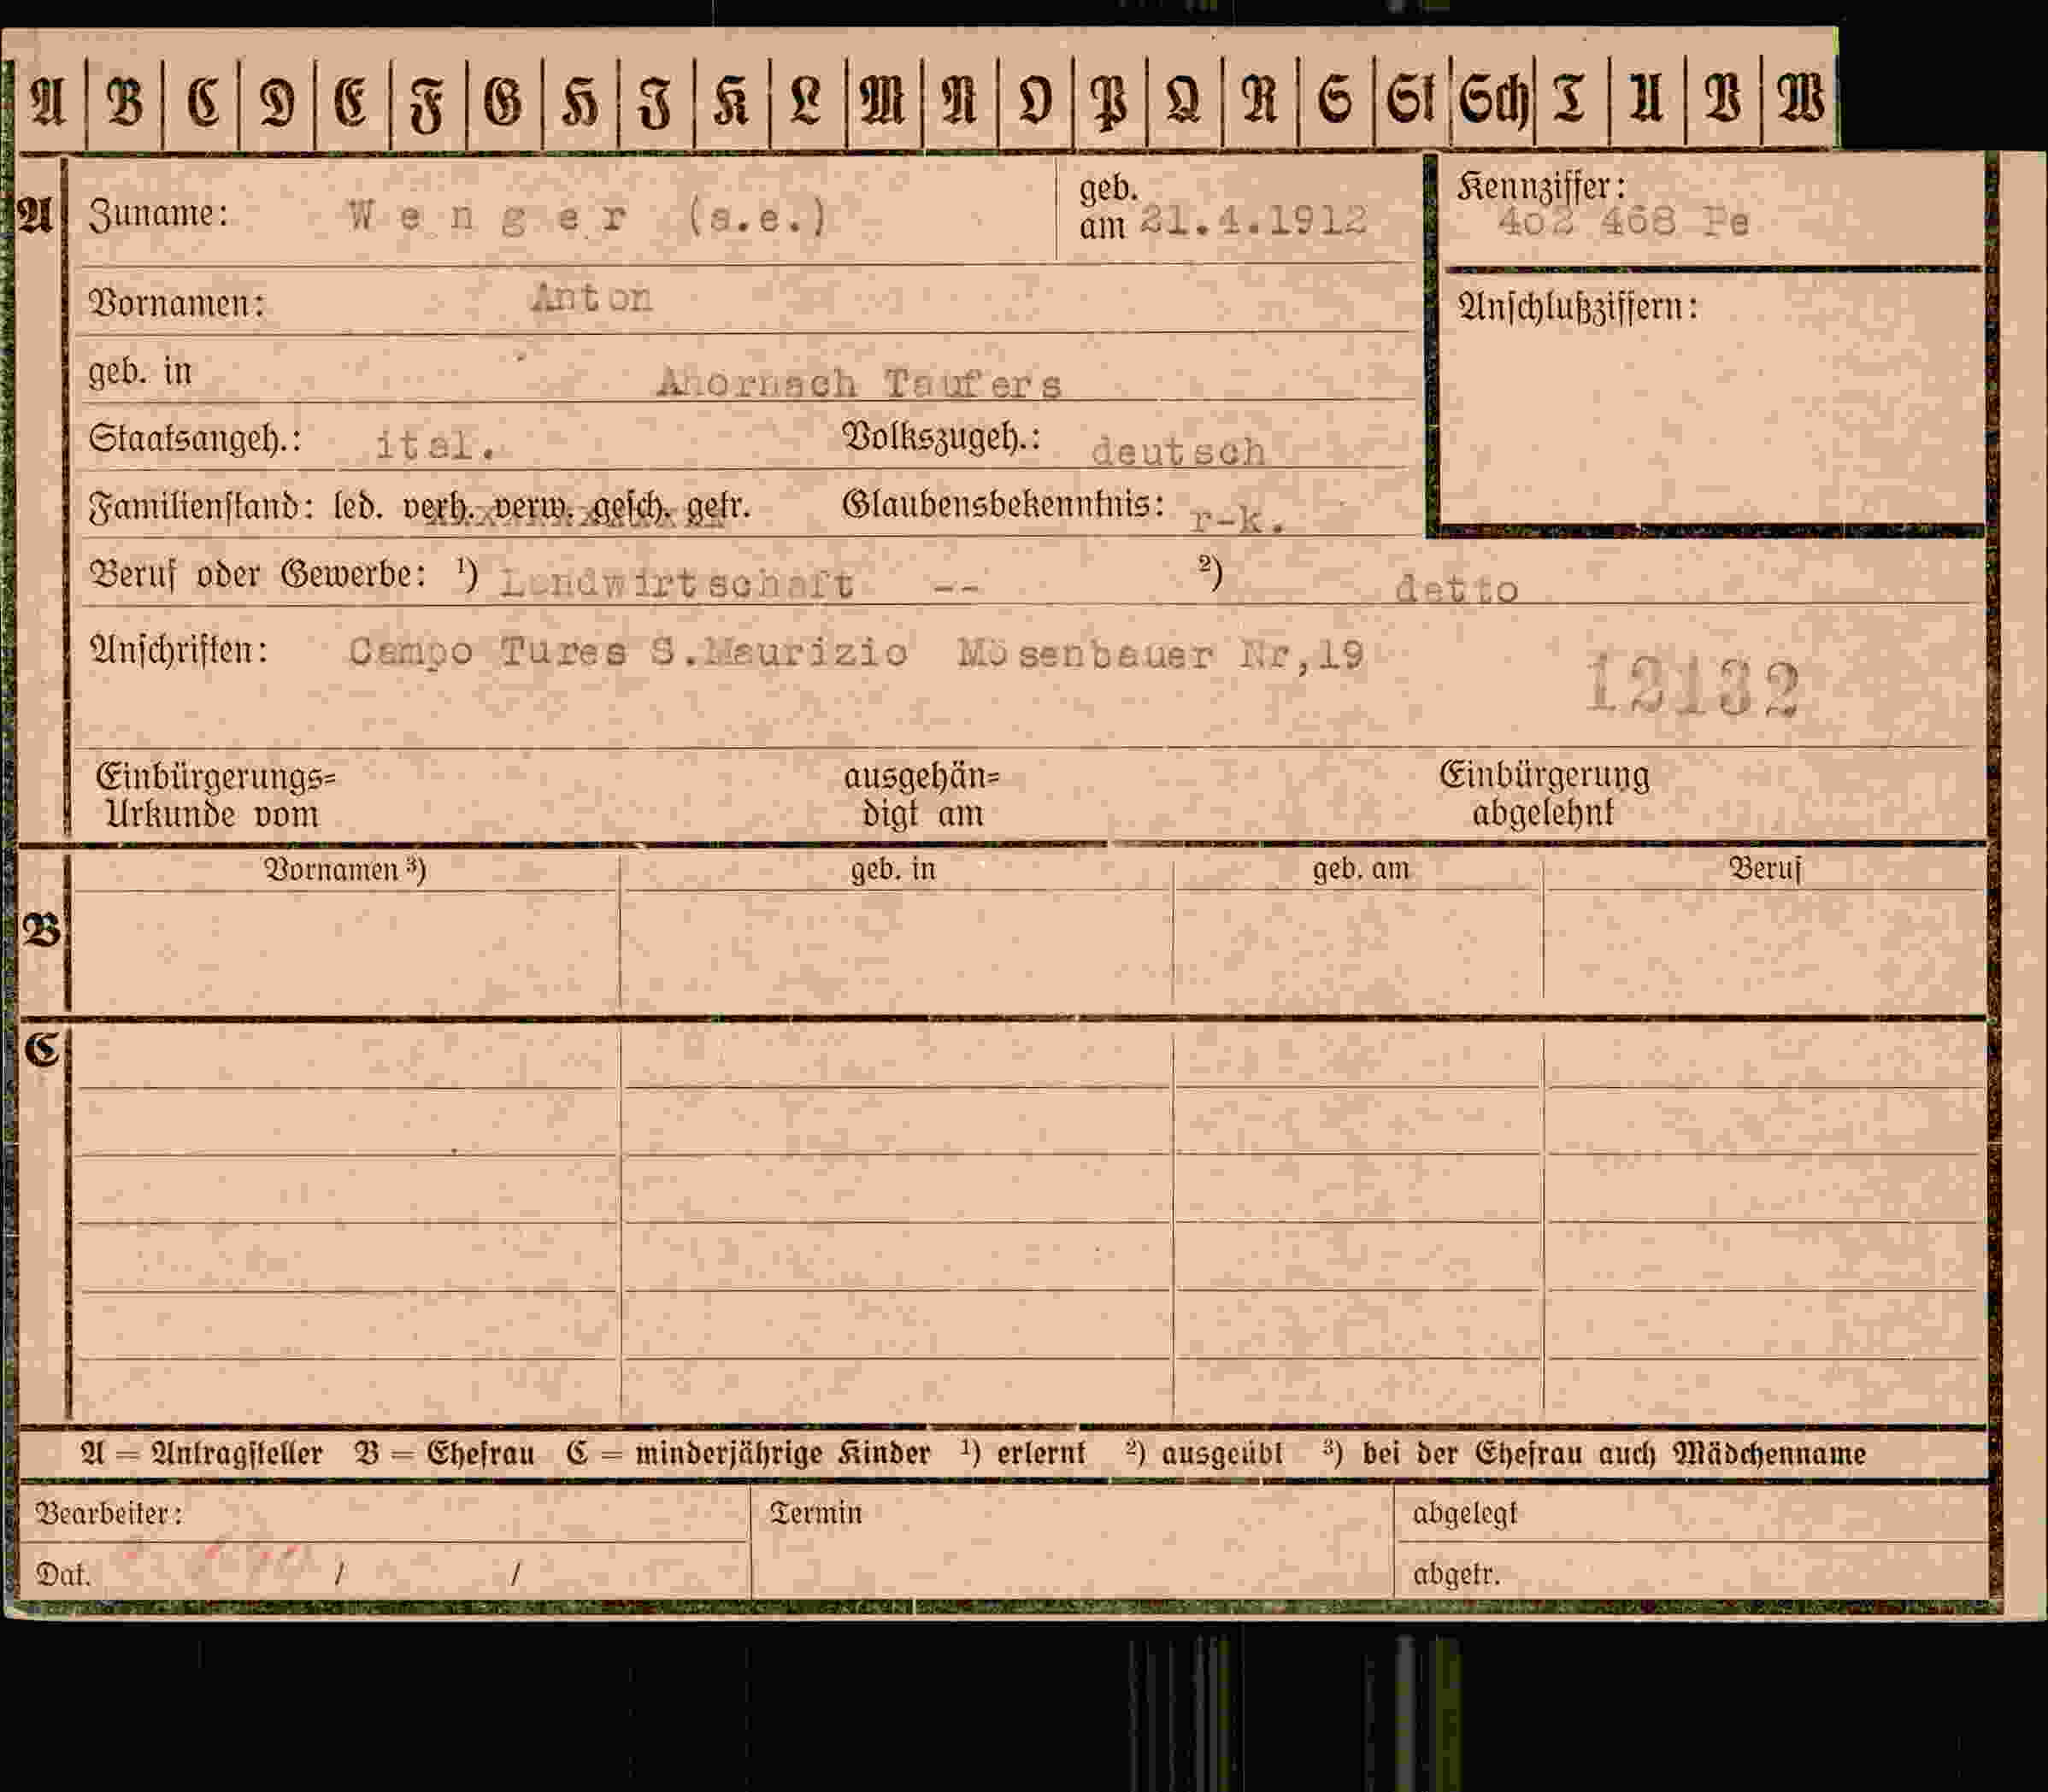 A B C D E F G H I K L M N O P Q R S St Sch T U V W
A Zuname: Wenger (s.e.) geb. am 21.4.1912 Kennziffer: 402 468 Pe
Vornamen: Anton Anschlußziffern:
geb. in Ahornach Taufers
Staatsangeh.: ital. Volkszugeh.: deutsch
Familienstand: led. verh. verw. gesch. getr. Glaubensbekenntnis: r-k.
Beruf oder Gewerbe: ¹) Landwirtschaft -- ²) detto
Anschriften: Campo Tures S.Maurizio Mösenbauer Nr,19
12132
Einbürgerungs= ausgehän= Einbürgerung
Urkunde vom digt am abgelehnt
Vornamen ³) geb. in geb. am Beruf
B
C
A = Antragsteller B = Ehefrau C = minderjährige Kinder ¹) erlernt ²) ausgeübt ³) bei der Ehefrau auch Mädchenname
Bearbeiter: Termin abgelegt
Dat. / / abgetr.